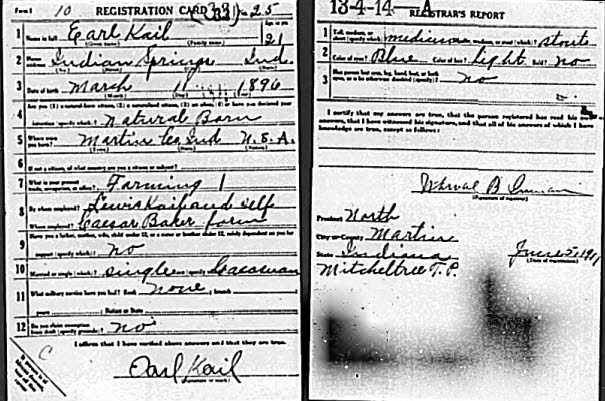 Form 1 10 REGISTRATION CARD 25
1 Name in full Earl Kail Age in yrs 21
(Given name) (Family name)
2 Home address Indian Springs Ind.
(No.) (Street) (State)
3 Date of birth March 11 1896
4 Are you (1) a natural-born citizen, (2) a naturalized citizen, (3) an alien, (4) or have you declared your
intention (specify which)? Natural Born
5 Where were you born? Martin Co Ind U.S.A.
(Town) (State) (Nation)
6 If not a citizen, of what country are you a citizen or subject?
7 What is your present trade, occupation, or office? Farming 1
8 By whom employed? Lewis Kail and self
Where employed? Caesar Baker farm
9 Have you a father, mother, wife, child under 12, or a sister or brother under 12, solely dependent on you for
support (specify which)? no
10 Married or single (which)? single Race (specify which)? Caucasian
11 What military service have you had? Rank none ; branch
years ; Nation or State
12 Do you claim exemption from draft (specify grounds)? no
I affirm that I have verified above answers and that they are true.
Earl Kail
(Signature or mark)
C
13-4-14- A
REGISTRAR'S REPORT
1 Tall, medium, or short (specify which)? medium Slender, medium, or stout (which)? stout
2 Color of eyes? Blue Color of hair? Light Bald? No
3 Has person lost arm, leg, hand, foot, or both eyes, or is he otherwise disabled (specify)? No
I certify that my answers are true, that the person registered has read his own
answers, that I have witnessed his signature, and that all of his answers of which I have
knowledge are true, except as follows:
B
(Signature of registrar)
Precinct North
City or County Martin
State Indiana June 5, 191
(Date of registration)
Mitcheltree T.P.